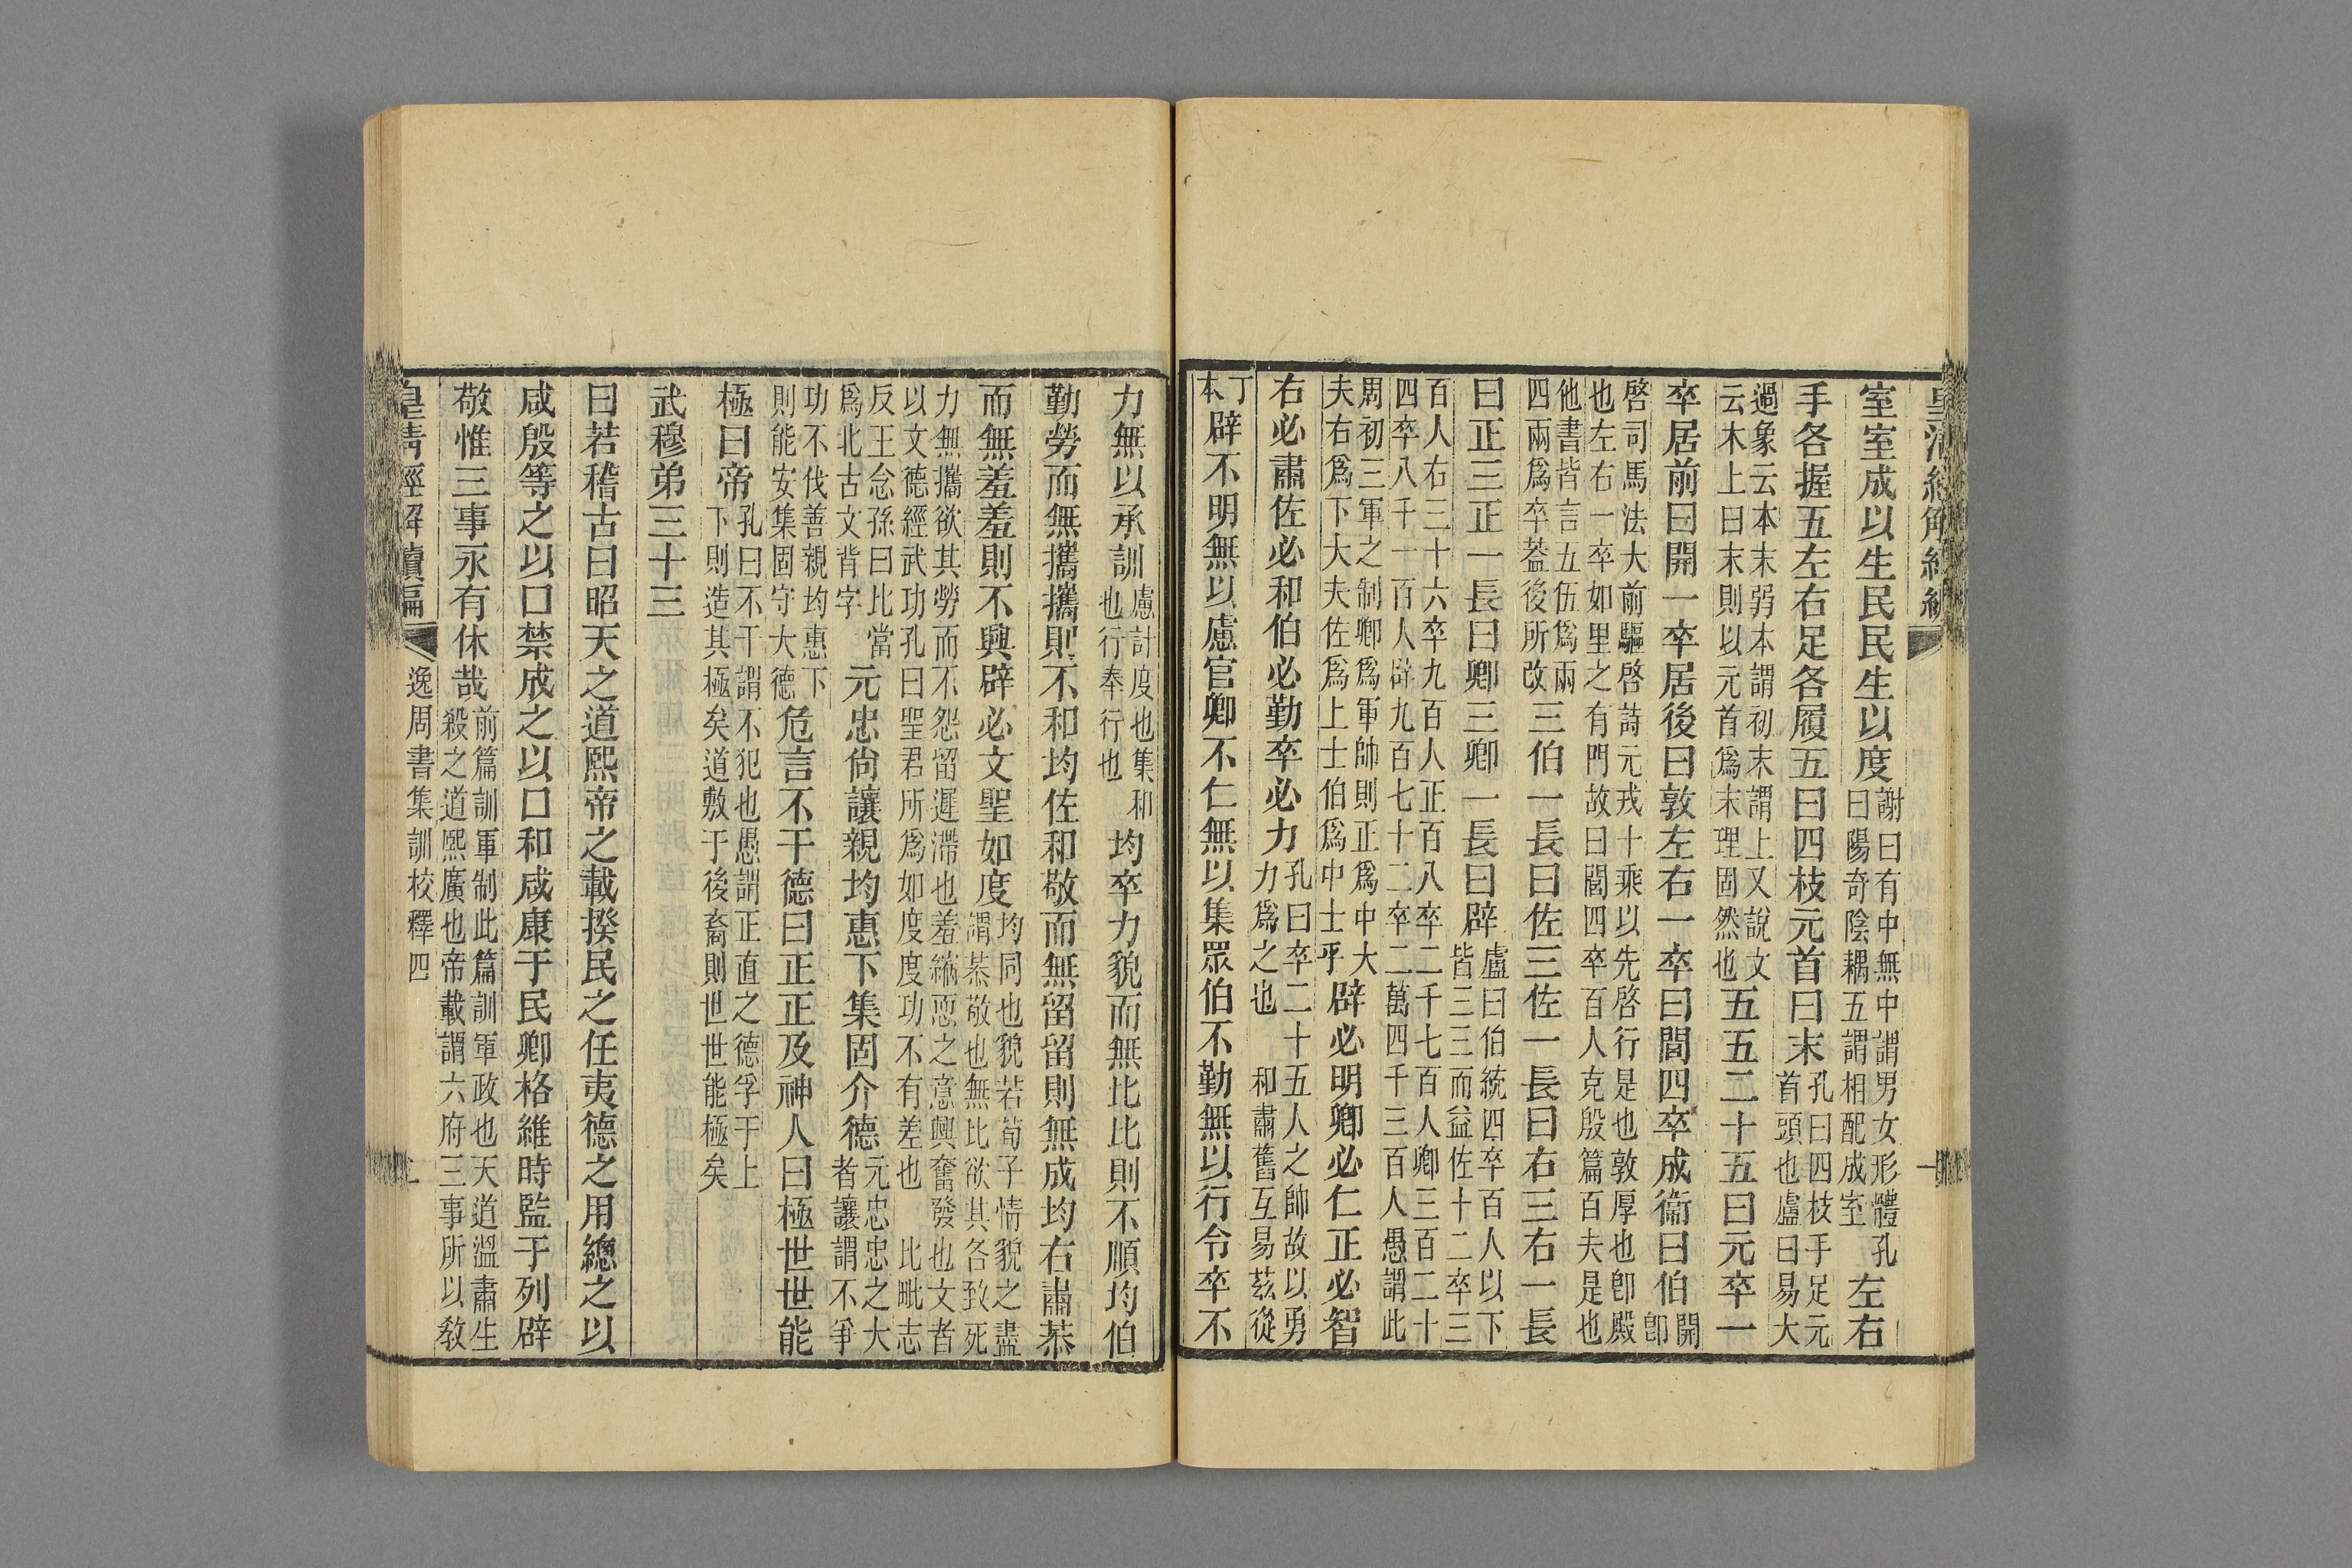 室室成以生民民生以度謝曰有中無中謂男女形體孔曰陽奇陰耦五謂相配成室左右
手各握五左右足各履五曰四枝元首曰末孔曰四枝手足元首頭也盧曰易大
過象云本末弱本謂初末謂上又說文云木上曰末則以元首爲末理固然也五五二十五曰元卒一
卒居前曰開一卒居後曰敦左右一卒曰閭四卒成衞曰伯開卽
啓司馬法大前驅啓詩元戎十乘以先啓行是也敦厚也卽殿也左右一卒如里之有門故曰閭四卒百人克殷篇百夫是也
他書皆言五伍爲兩四兩爲卒葢後所改三伯一長曰佐三佐一長曰右三右一長
曰正三正一長曰卿三卿一長曰辟盧曰伯統四卒百人以下皆三三而益佐十二卒三
百人右三十六卒九百人正百八卒二千七百人卿三百二十四卒八千一百人辟九百七十二卒二萬四千三百人愚謂此
周初三軍之制卿爲軍帥則正爲中大夫右爲下大夫佐爲上士伯爲中士乎辟必明卿必仁正必智
右必肅佐必和伯必勤卒必力孔曰卒二十五人之帥故以勇力爲之也和肅舊互易茲從
丁本辟不明無以慮官卿不仁無以集眾伯不勤無以行令卒不
力無以承訓慮計度也集和也行奉行也均卒力貌而無比比則不順均伯
勤勞而無攜攜則不和均佐和敬而無留留則無成均右肅恭
而無羞羞則不興辟必文聖如度均同也貌若荀子情貌之盡謂恭敬也無比欲其各致死
力無攜欲其勞而不怨留遲滯也羞縮恧之意興奮發也文者以文德經武功孔曰聖君所爲如度度功不有差也比毗志
反王念孫曰比當爲北古文背字元忠尙讓親均惠下集固介德元忠忠之大者讓謂不爭
功不伐善親均惠下則能安集固守大德危言不干德曰正正及神人曰極世世能
極曰帝孔曰不干謂不犯也愚謂正直之德孚于上下則造其極矣道敷于後裔則世世能極矣
武穆弟三十三
曰若稽古曰昭天之道熙帝之載揆民之任夷德之用總之以
咸殷等之以□禁成之以□和咸康于民卿格維時監于列辟
敬惟三事永有休哉前篇訓軍制此篇訓軍政也天道溫肅生殺之道熙廣也帝載謂六府三事所以敎
皇清經解續編 逸周書集訓校釋四